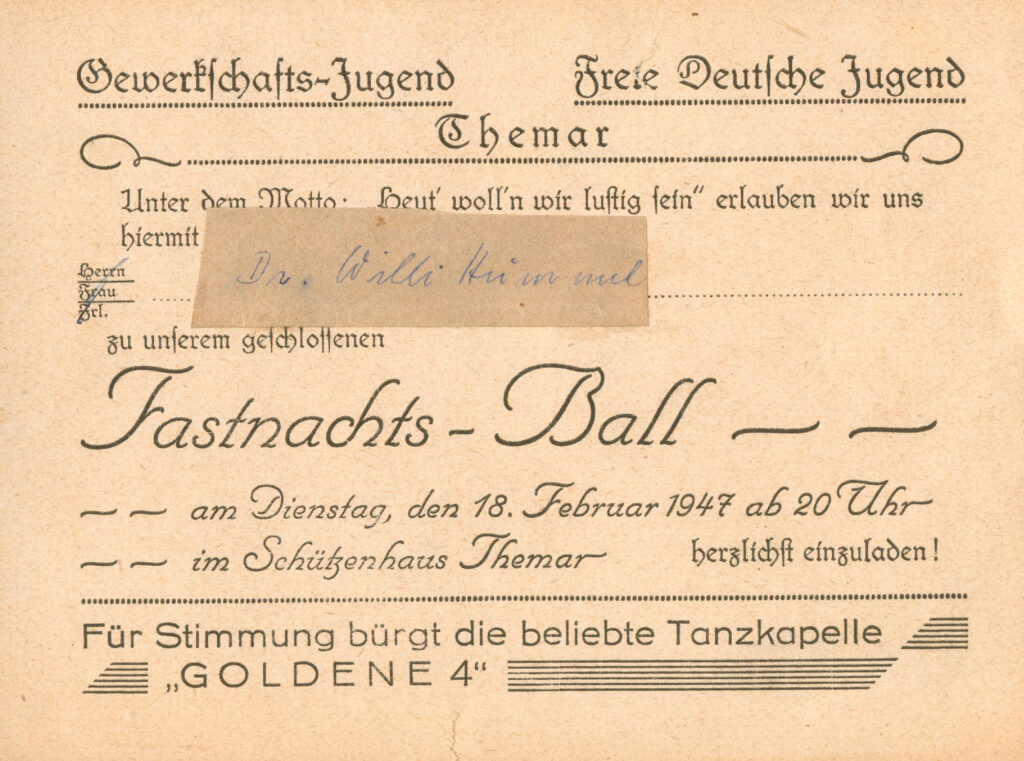 Gewerkschafts-Jugend Freie Deutsche Jugend
Themar
Unter dem Motto: „Heut' woll'n wir lustig sein“ erlauben wir uns
hiermit
Herrn
Frau
Frl.
Dr. Willi Hümmel
zu unserem geschlossenen
Fastnachts-Ball
am Dienstag, den 18. Februar 1947 ab 20 Uhr
im Schützenhaus Themar herzlichst einzuladen!
Für Stimmung bürgt die beliebte Tanzkapelle
„GOLDENE 4“